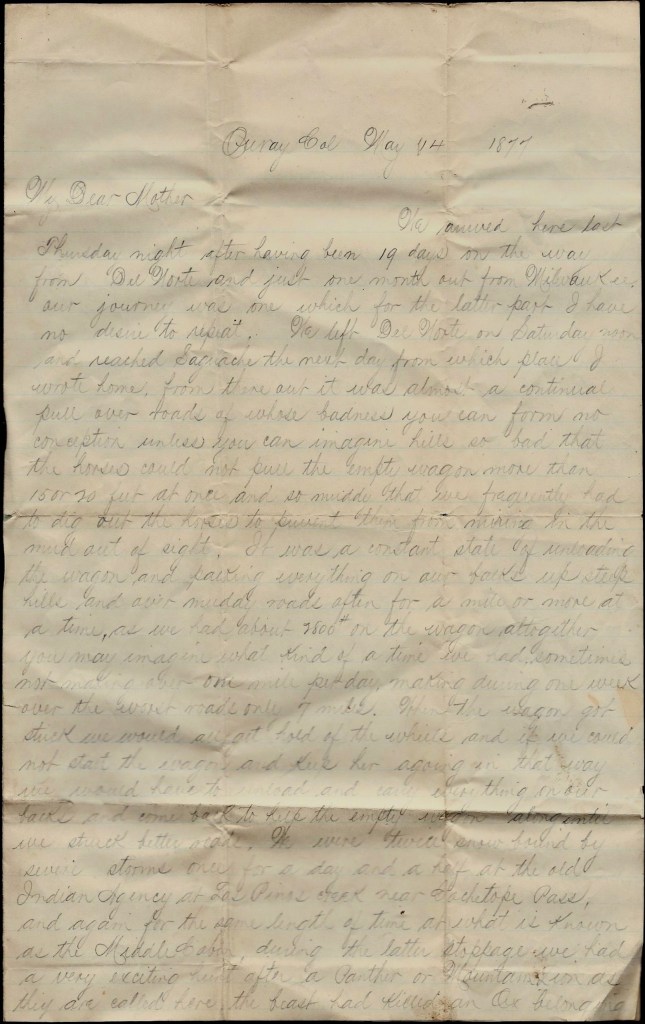 Ouray Col May 14 1877
My Dear Mother
We arrived here last
Thursday night after having been 19 days on the way
from Del Norte and just one month out from Milwaukee,
our journey was one which for the latter part I have
no desire to repeat. We left Del Norte on Saturday noon
and reached Saguache the next day from which place I
wrote home, from there out it was almost a continual
pull over roads of whose badness you can form no
conception unless you can imagine hills so bad that
the horses could not pull the empty wagon more than
15 or 20 feet at once and so muddy that we had
to dig out the horses to prevent them from mireing in the
mud out of sight. It was a constant state of unloading
the wagon and packing everything on our backs up steep
hills and over muddy roads often for a mile or more at
a time, as we had about on the wagon altogether
you may imagine what kind of a time we had, sometimes
not making over one mile per day, making during one week
over the worst roads only 7 miles. When the wagon got
stuck we would all get hold of the wheels and if we could
not start the wagon and her agoing in that way
we would have to unload and carry everything on our
backs and come back to help the empty wagon along until
we struck better roads. We were twice snow bound by
severe storms once for a day and a half at the old
Indian Agency at Los Pinos creek near Cochetopa Pass,
and again for the same length of time at what is known
as the Middle during the latter stoppage we had
a very exciting hunt after a Panther or Mountain Lion as
they are called here, the beast had killed an Ox belonging